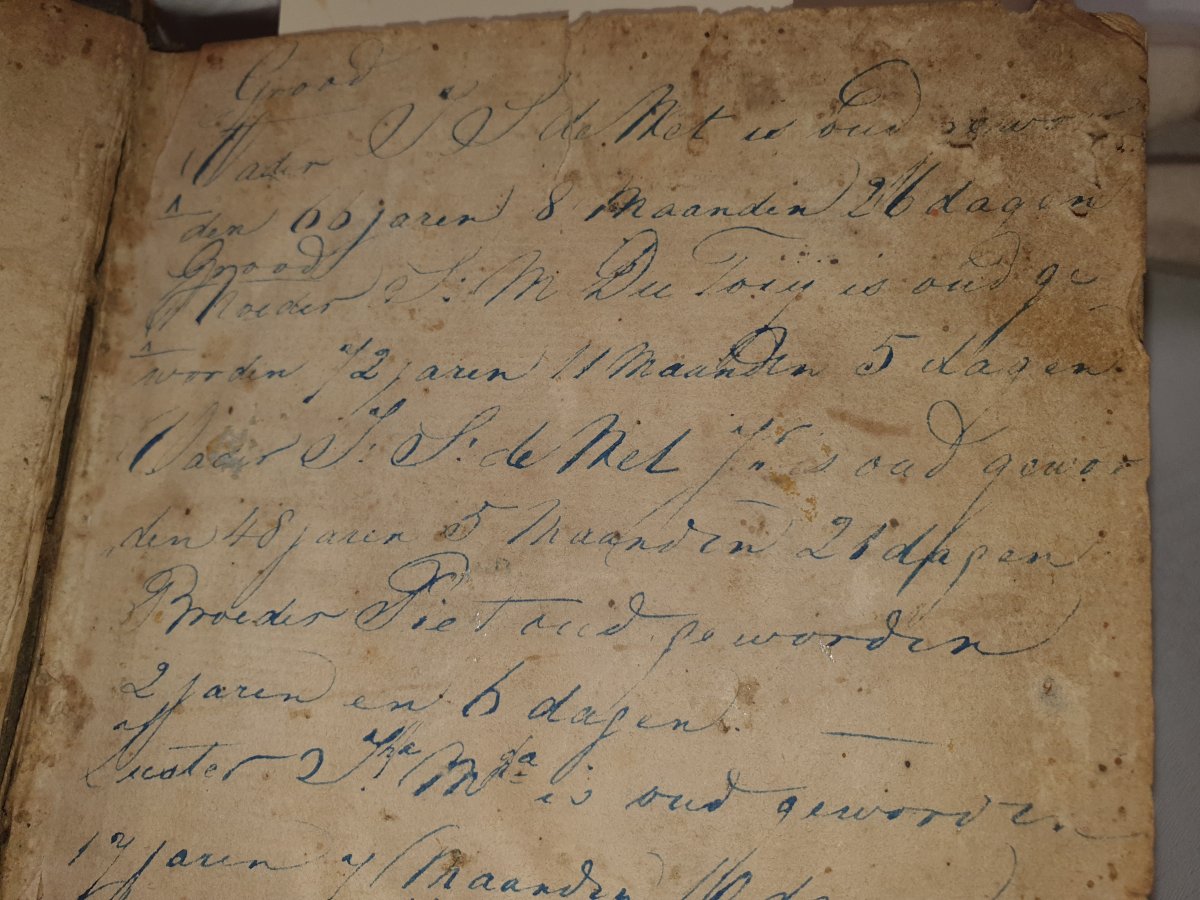 Grood
Vader J S de Wet is oud gewor
den 66 jaren 8 Maanden 26 dagen
Grood
Moeder S: M Du Toiy is oud ge-
worden 72 jaren 11 Maanden 5 dagen.
Vader J: S: de Wet Jr is oud gewor
den 48 jaren 5 Maanden 21 dagen
Broeder Piet oud geworden
2 jaren en 6 dagen. —
Suster is oud geworden
17 jaren 7 Maanden